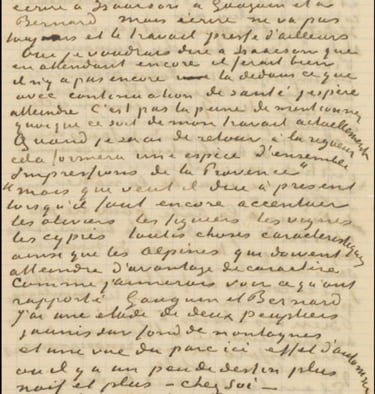 écrire à Isaacson à Gauguin et à
Bernard mais écrire ne va pas
toujours et le travail presse d'ailleurs
Oui je voudrais dire à Isaacson que
en attendant encore il ferait bien
il n'y a pas encore la dedans ce que
avec continuation de santé j'espère
atteindre C'est pas la peine de mentionner
quoi que ce soit de mon travail actuellement
Quand je serai de retour à la rigueur
cela formera une espèce d'ensemble
Impressions de la Provence
mais que veut il dire à present
lorsqu'il faut encore accentuer
les oliviers les figuiers les vignes
les cyprès toutes choses caracteristiques
ainsi que les alpines qui doivent
atteindre d'avantage de caractère
Comme j'aimerais voir ce qu'ont
rapporté Gauguin et Bernard
J'ai une étude de deux peupliers
jaunis sur fond de montagnes
et une vue du parc ici effet d'automne
où il y a un peu de dessin plus
naïf et plus – chez soi –